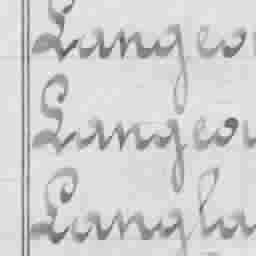 Langeo
Langeo
Langla